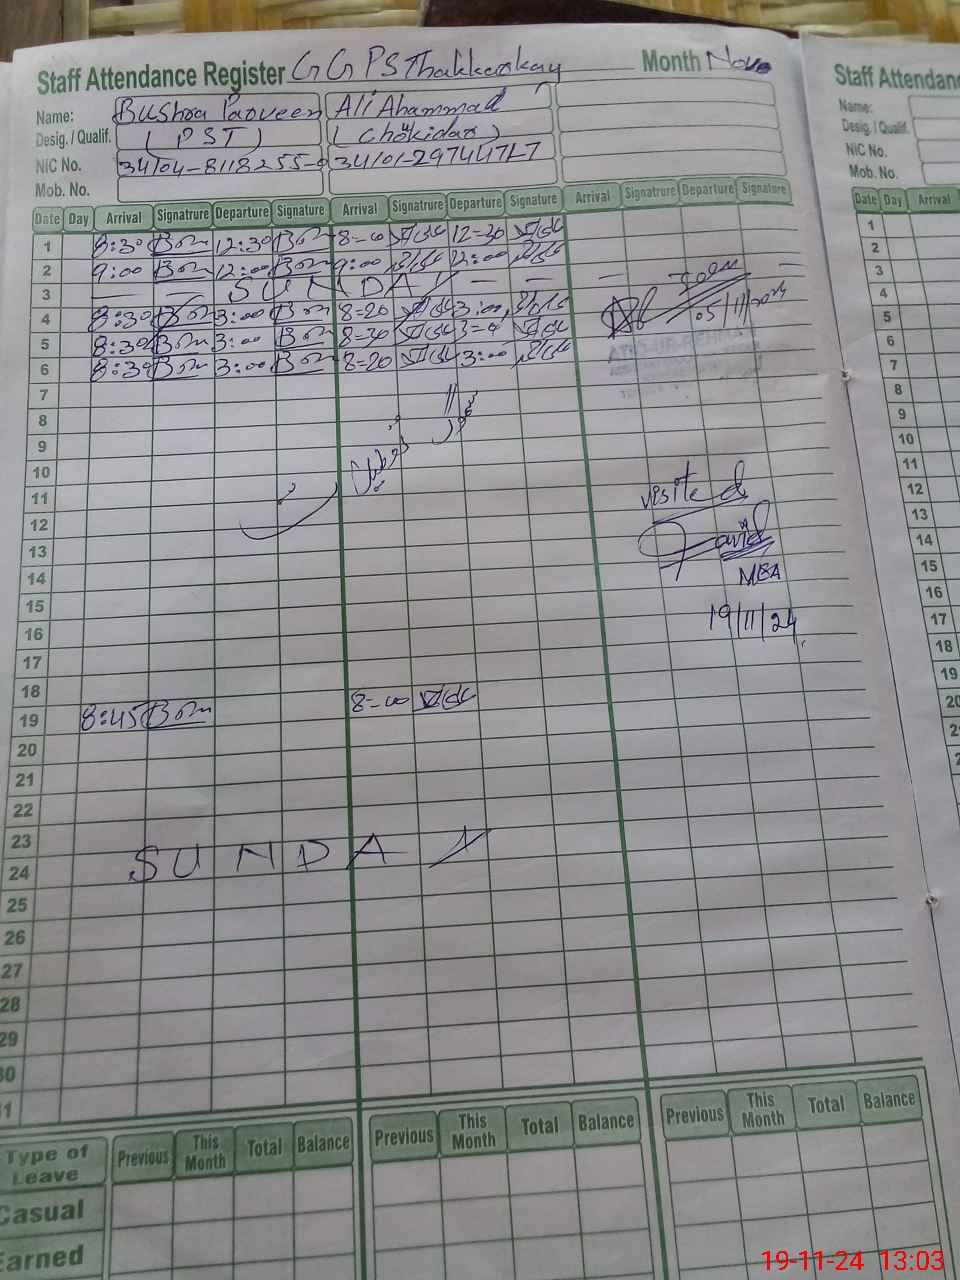 Staff Attendance Register GGPS Thakkerkay Month Nove
Name: Bushra Parveen Ali Ahammad
Desig. / Qualif. (PST) (Chokidar)
NIC No. 34104-8118255- 34101-2974471-7
Mob. No.
Date Day Arrival Signatrure Departure Signature Arrival Signatrure Departure Signature Arrival Signatrure Departure Signature
1 8:30 12:30 8-00 12-30
2 9:00 12:00 9:00 12:00
3 — — SUNDAY — — —
4 8:30 3:00 8-20 3:00
05/11/2024
5 8:30 3:00 8-30 3-0
6 8:30 3:00 8-20 3:00
7
8
9
10
11
visited
12
13
Javid
14
MEA
15
19/11/24
16
17
18
19 8:45 8-00
20
21
22
23
24 SUNDAY
25
26
27
28
29
30
31
Type of Leave Previous This Month Total Balance Previous This Month Total Balance Previous This Month Total Balance
Casual
Earned
Staff Attendan
Name:
Desig. / Qualif.
NIC No.
Mob. No.
Date Day Arrival
1
2
3
4
5
6
7
8
9
10
11
12
13
14
15
16
17
18
19
20
19-11-24 13:03